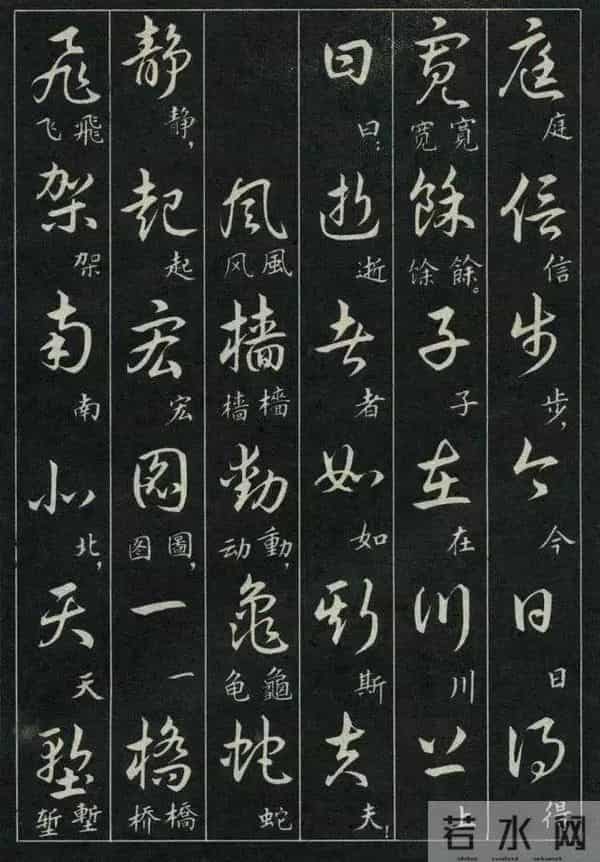 庭信步今日得
庭信步，今日得
寬餘子在川上
宽寬馀餘。子在川上
曰逝者如斯夫
曰：逝者如斯夫！
風檣動龜蛇
风風樯檣动動，龟龜蛇
静起宏圖一橋
静，起宏图圖，一桥橋
飛架南北天塹
飞飛架南北，天堑塹
若水网